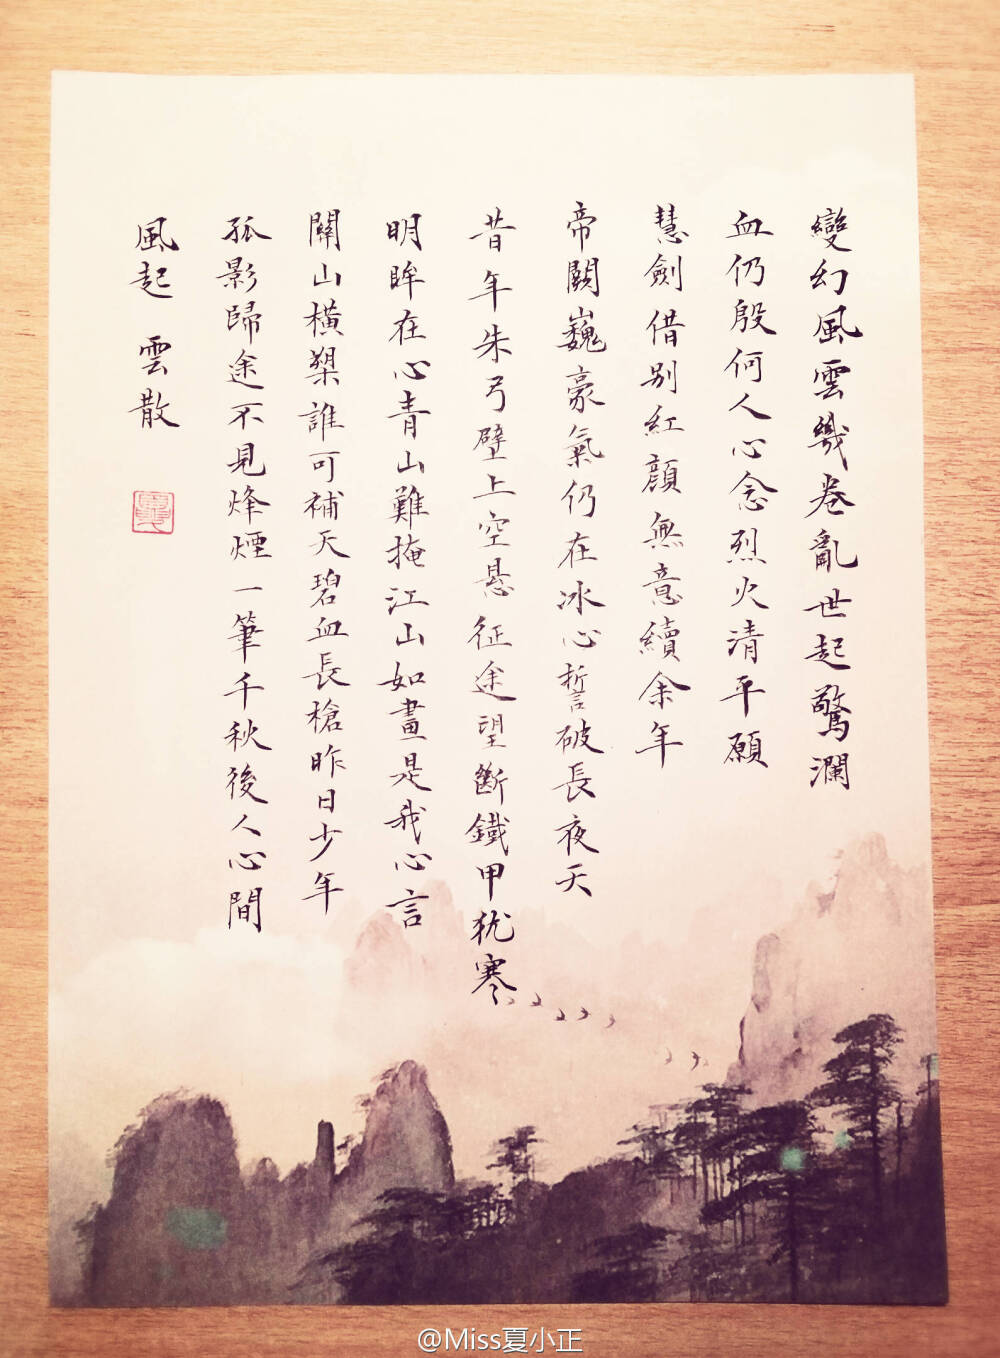 變幻風雲幾卷亂世起驚瀾
血仍殷何人心念烈火清平願
慧劍借别紅顏無意續余年
帝闕巍豪氣仍在冰心誓破長夜天
昔年朱弓壁上空悬征途望斷鐵甲犹寒
明眸在心青山難掩江山如畫是我心言
關山橫槊誰可補天碧血長槍昨日少年
孤影歸途不見烽煙一筆千秋後人心間
風起 雲散
@Miss夏小正